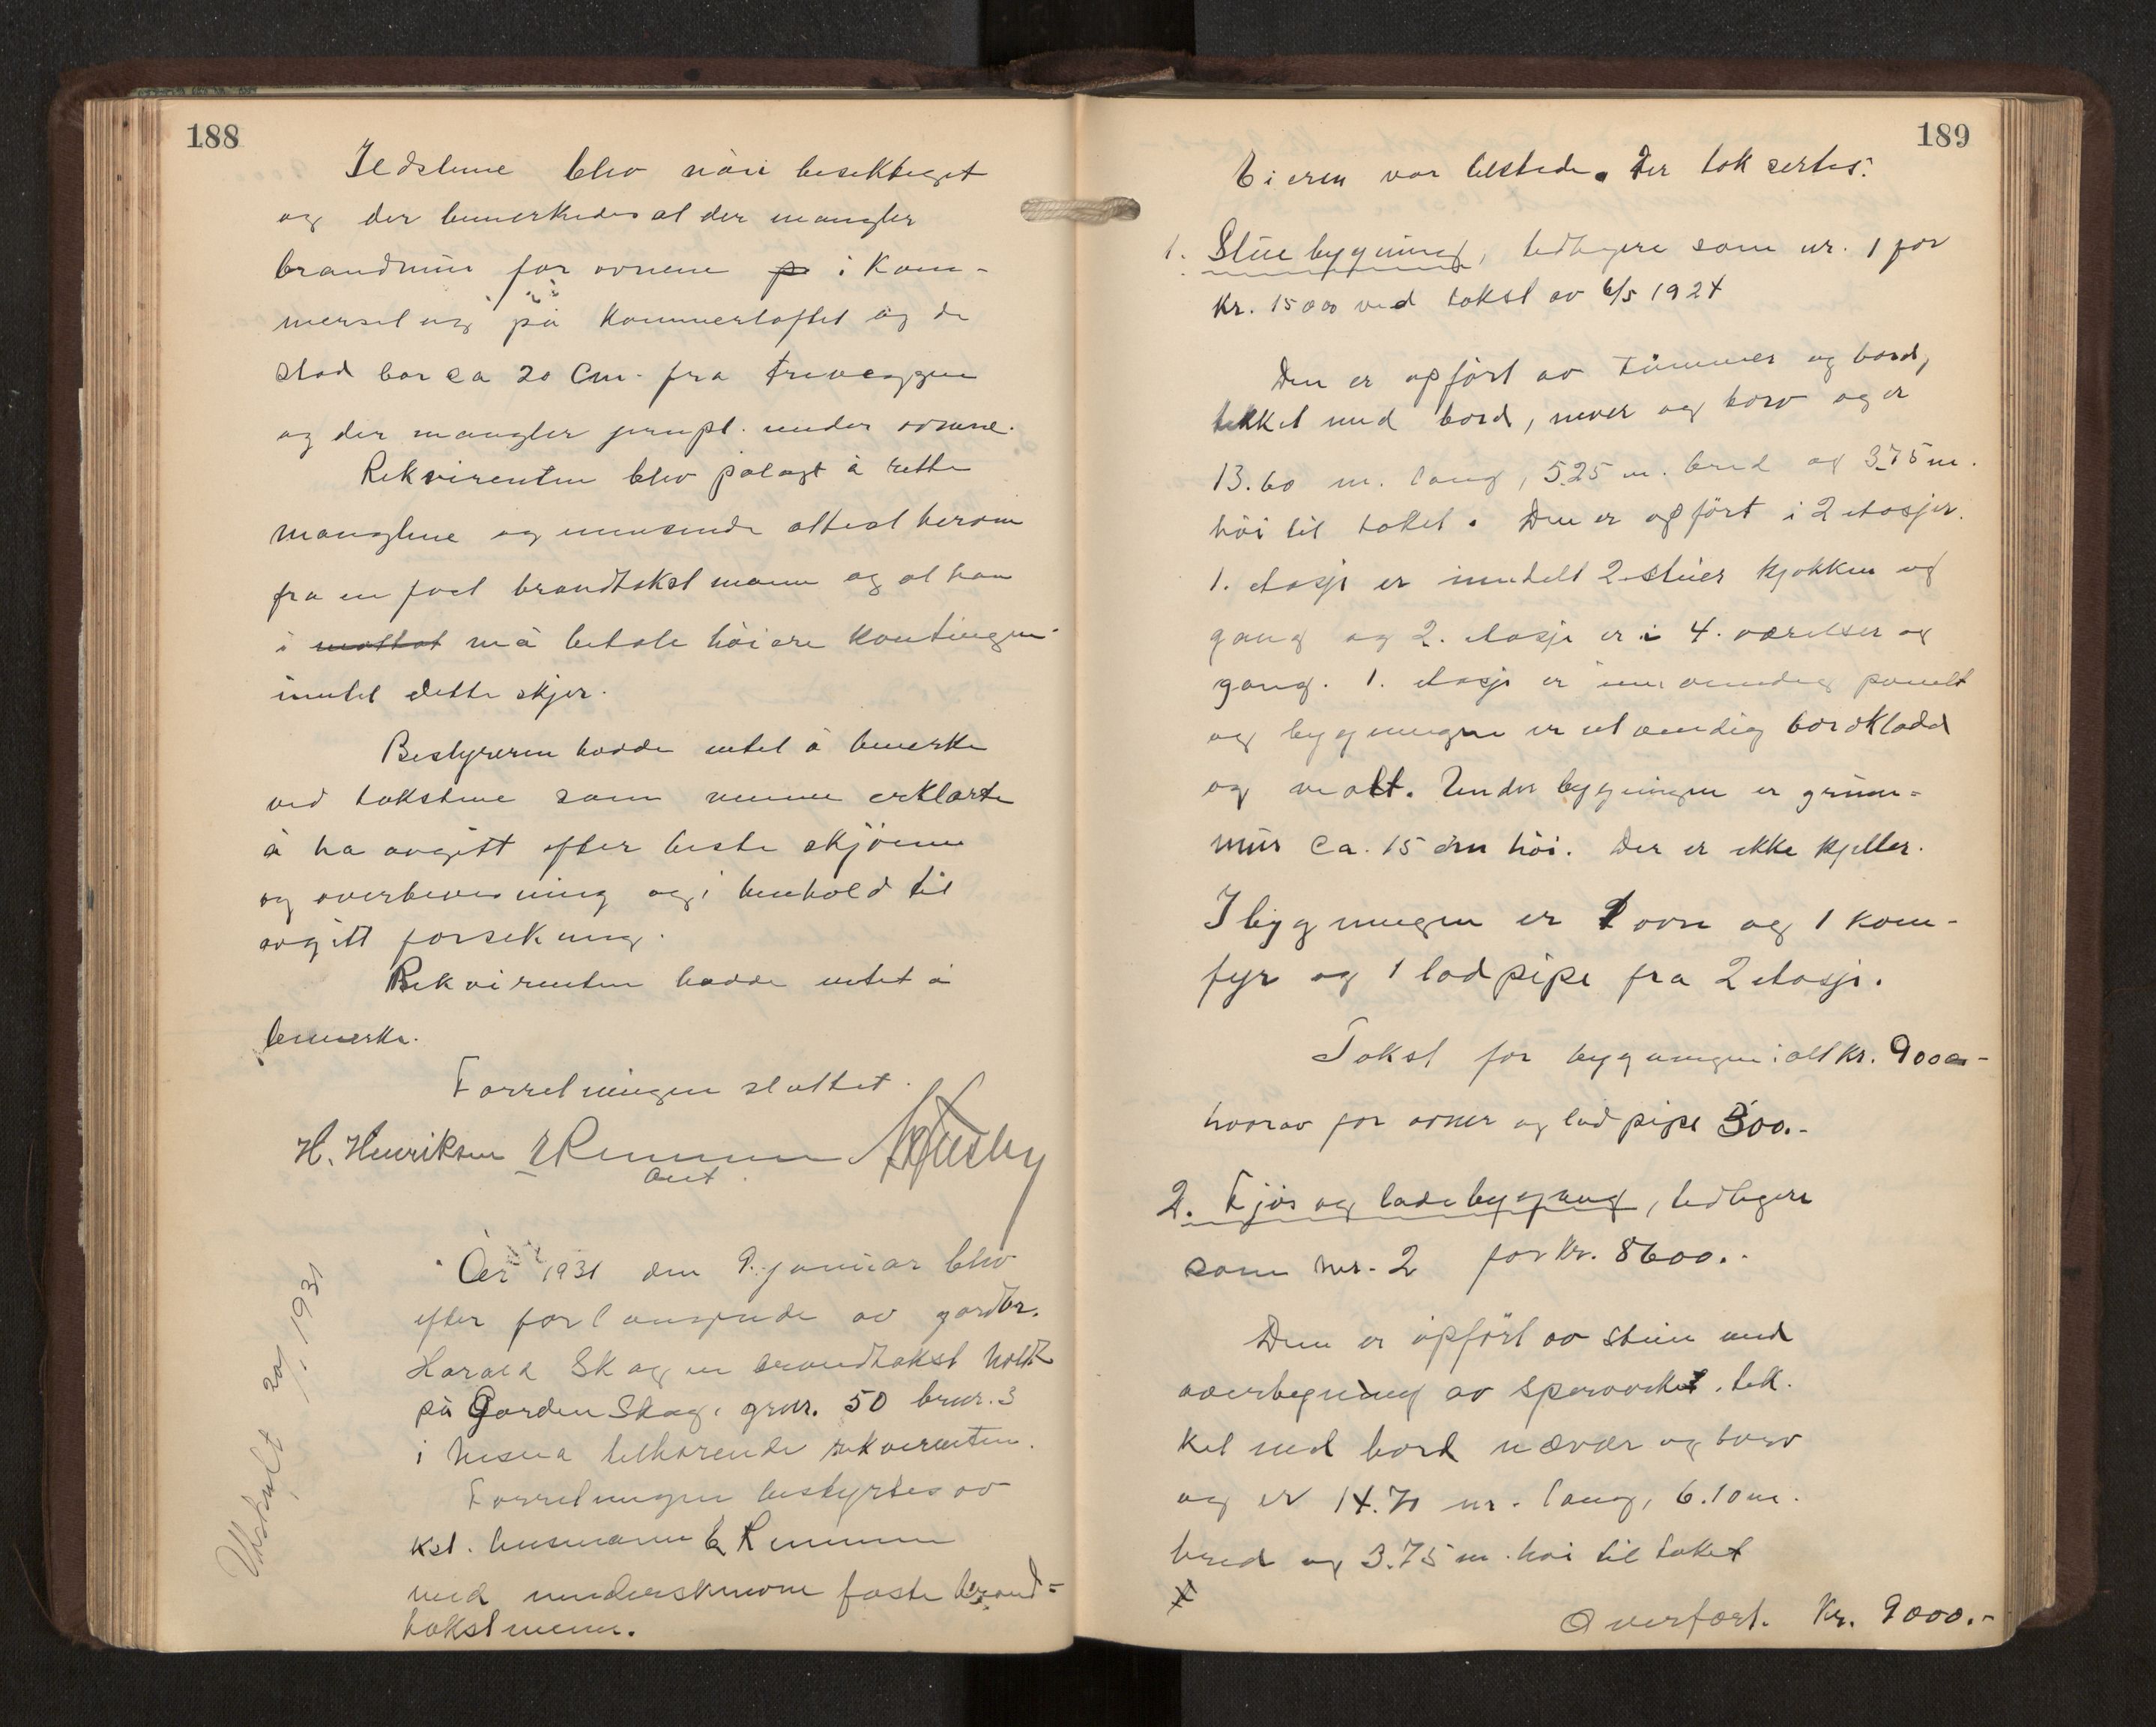 188
Ildstene blev nøie besiktiget
og der bemerkedes at der mangler
brandmur for ovnene p i kam-
merset og på kammerloftet og de
stod bar ca 20 cm. fra treveggen
og der mangler jernpl. under ovnene.
Rekvirenten blev pålagt å rette
manglene og innsende attest herom
fra en fast brandtakstmann og at han
i mottat må betale høiere kontingen
inntil dette skjer.
Bestyreren hadde intet å bemerke
ved takstene som mennene erklærte
å ha avgitt efter beste skjønn
og overbevisning og i henhold til
avgitt forsikring.
Rekvirenten hadde intet å
bemerke.
Forretningen sluttet.
H. Henriksen E Remmen
aut.
Utskrift 20/1 1931
År 1931 den 9. januar blev
efter forlangende av gardbr.
Harald Skog en brandtakst holdt
på Garden Skog, grnr. 50 brnr. 3
i Nesna tilhørende rekvirenten.
Forretningen bestyrtes av
kst. lensmann E Remmen
med underskrevne faste brand-
takstmenn.
189
Eieren var tilstede. Der taksertes:
1. Stuebygning, tidligere som nr. 1 for
kr. 15000 ved takst av 6/5 1924
Den er opført av tømmer og bord,
tekket med bord, never og torv og er
13.60 m. lang, 5.25 m. bred og 3.75 m.
høi til taket. Den er opført i 2 etasjer.
1. etasje er inndelt 2 stuer kjøkken og
gang og 2. etasje er i 4. værelser og
gang. 1. etasje er innvendig panelt
og bygningen er utvendig bordkledd
og malt. Under bygningen er grunn-
mur ca. 15 cm høi. Der er ikke kjeller.
I bygningen er 1 ovn og 1 kom-
fyr og 1 lodpipe fra 2 etasje.
Takst for bygningen i alt kr. 9000-
hvorav for ovner og lodpipe 300.-
2. Fjøs og ladebygning, tidligere
som nr. 2 for kr. 8600.-
Den er opført av sten med
overbygning av sperverket, tek-
ket med bord næver og torv
og er 14.70 m. lang, 6.10 m.
bred og 3.75 m. høi til taket
Overført. Kr. 9000.-